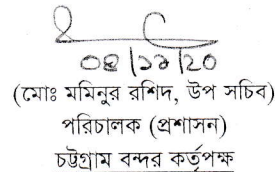 ০৪|১১|২০
(মোঃ মমিনুর রশিদ, উপ সচিব)
পরিচালক (প্রশাসন)
চট্টগ্রাম বন্দর কর্তৃপক্ষ